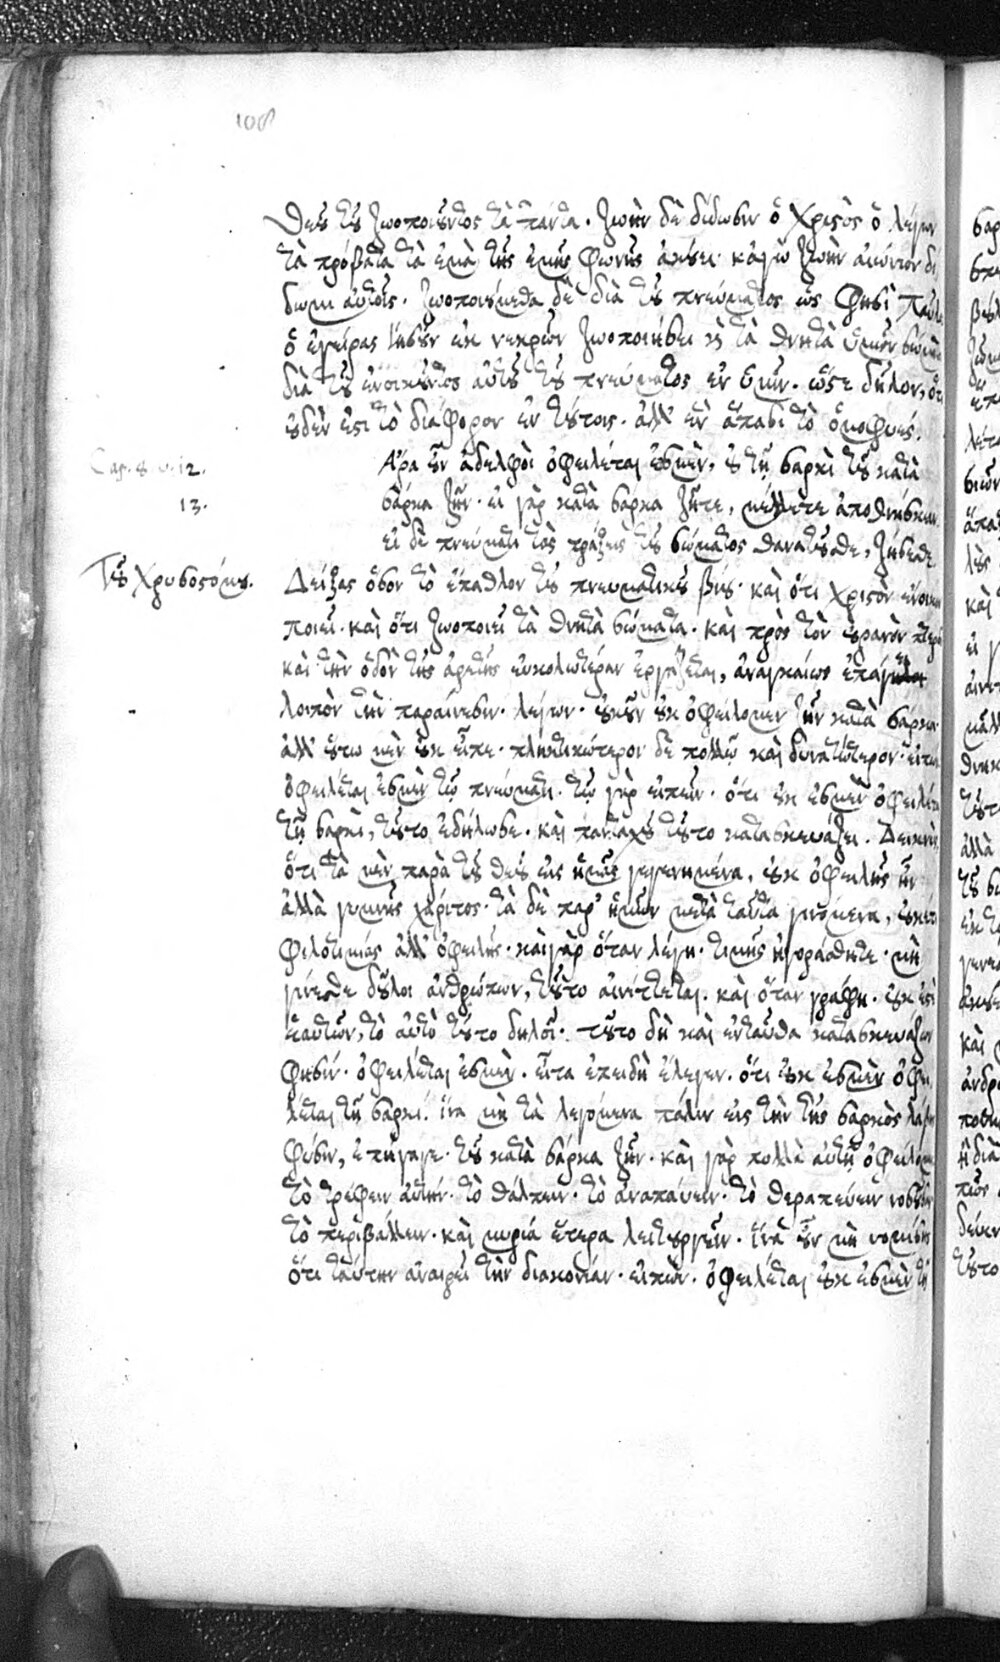 108
Θεοῦ τοῦ ζωοποιοῦντος τὰ πάντα. ζωὴν δὲ δίδωσιν ὁ Χριστὸς ὁ λέγων
τὰ πρόβατα τὰ ἐμὰ τῆς ἐμῆς φωνῆς ἀκούει· κἀγὼ ζωὴν αἰώνιον δί
δωμι αὐτοῖς. ζωοποιούμεθα δὲ διὰ τοῦ πνεύματος ὥς φησὶ Παῦλος
ὁ ἐγείρας Ἰησοῦν ἐκ νεκρῶν ζωοποιήσει καὶ τὰ θνητὰ ὑμῶν σώματα
διὰ τοῦ ἐνοικοῦντος αὐτοῦ τοῦ πνεύματος ἐν ὑμῖν. ὥστε δῆλον, ὅτι
οὐδὲν ἐστὶ τὸ διάφορον ἐν τούτοις. ἀλλ' ἐν ἅπασι τὸ ὁμοφυές.
Cap. 8 v. 12. Ἄρα οὖν ἀδελφοὶ ὀφειλέται ἐσμὲν, οὐ τῇ σαρκὶ τοῦ κατὰ
13. σάρκα ζῆν· εἰ γὰρ κατὰ σάρκα ζῆτε, μέλλετε ἀποθνήσκειν
εἰ δὲ πνεύματι τὰς πράξεις τοῦ σώματος θανατοῦτε, ζήσεσθε.
Τοῦ Χρυσοστόμου. Δείξας ὅσον τὸ ἔπαθλον τοῦ πνευματικοῦ βίου· καὶ ὅτι Χριστὸν ἔνοικον
ποιεῖ· καὶ ὅτι ζωοποιεῖ τὰ θνητὰ σώματα· καὶ πρὸς τὸν οὐρανὸν πτεροῖ
καὶ τὴν ὁδὸν τῆς ἀρετῆς εὐκολωτέραν ἐργάζεται, ἀναγκαίως ἐπάγει
λοιπὸν τὴν παραίνεσιν· λέγων· οὐκοῦν οὐκ ὀφείλομεν ζῆν κατὰ σάρκα·
ἀλλ' οὕτω μὲν οὐκ εἶπε· πληκτικώτερον δὲ πολλῷ καὶ δυνατώτερον· εἰπὼν
ὀφειλέται ἐσμὲν τῷ πνεύματι. τῷ γὰρ εἰπεῖν· ὅτι οὐκ ἐσμὲν ὀφειλέται
τῇ σαρκὶ, τοῦτο ἐδήλωσε· καὶ πανταχοῦ τοῦτο κατασκευάζει. Δεικνὺς
ὅτι τὰ μὲν παρὰ τοῦ θεοῦ εἰς ἡμᾶς γεγενημένα, οὐκ ὀφειλῆς ἦν
ἀλλὰ γυμνῆς χάριτος· τὰ δὲ παρ' ἡμῶν μετὰ ταῦτα γινόμενα, οὐκέτι
φιλοτιμίας ἀλλ' ὀφειλῆς· καὶ γὰρ ὅταν λέγῃ· τιμῆς ἠγοράσθητε· μὴ
γίνεσθε δοῦλοι ἀνθρώπων, τοῦτο αἰνίττεται. καὶ ὅταν γράφῃ· οὐκ ἐστὲ
ἑαυτῶν, τὸ αὐτὸ τοῦτο δηλοῖ· τοῦτο δὴ καὶ ἐνταῦθα κατασκευάζων
φησίν· ὀφειλέται ἐσμὲν. εἶτα ἐπειδὴ ἔλεγεν· ὅτι οὐκ ἐσμὲν ὀφει
λέται τῇ σαρκί. ἵνα μὴ τὰ λεγόμενα πάλιν εἰς τὴν τῆς σαρκὸς λάβῃς
φύσιν, ἐπήγαγε· τοῦ κατὰ σάρκα ζῆν. καὶ γὰρ πολλὰ αὐτῇ ὀφείλομεν
τὸ τρέφειν αὐτήν· τὸ θάλπειν· τὸ ἀναπαύειν· τὸ θεραπεύειν νοσοῦσαν
τὸ περιβάλλειν· καὶ μυρία ἕτερα λειτουργεῖν. ἵνα οὖν μὴ νομίσῃς
ὅτι ταύτην ἀναιρεῖ τὴν διακονίαν· εἰπὼν· ὀφειλέται οὐκ ἐσμὲν τῇ